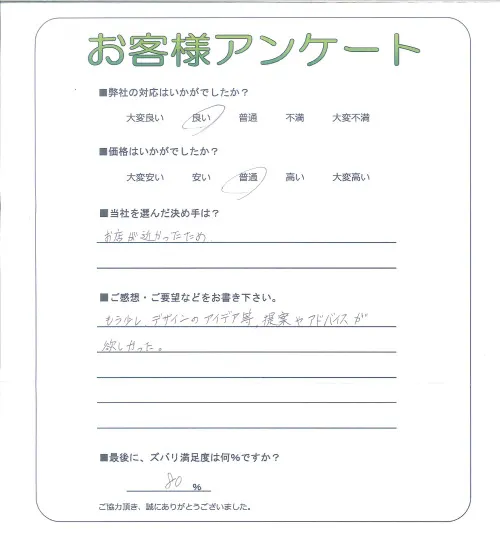 お客様アンケート
■弊社の対応はいかがでしたか？
大変良い 良い 普通 不満 大変不満
■価格はいかがでしたか？
大変安い 安い 普通 高い 大変高い
■当社を選んだ決め手は？
お店が近かったため
■ご感想・ご要望などをお書き下さい。
もう少し デザインのアイデア等、提案やアドバイスが
欲しかった。
■最後に、ズバリ満足度は何％ですか？
80 ％
ご協力頂き、誠にありがとうございました。